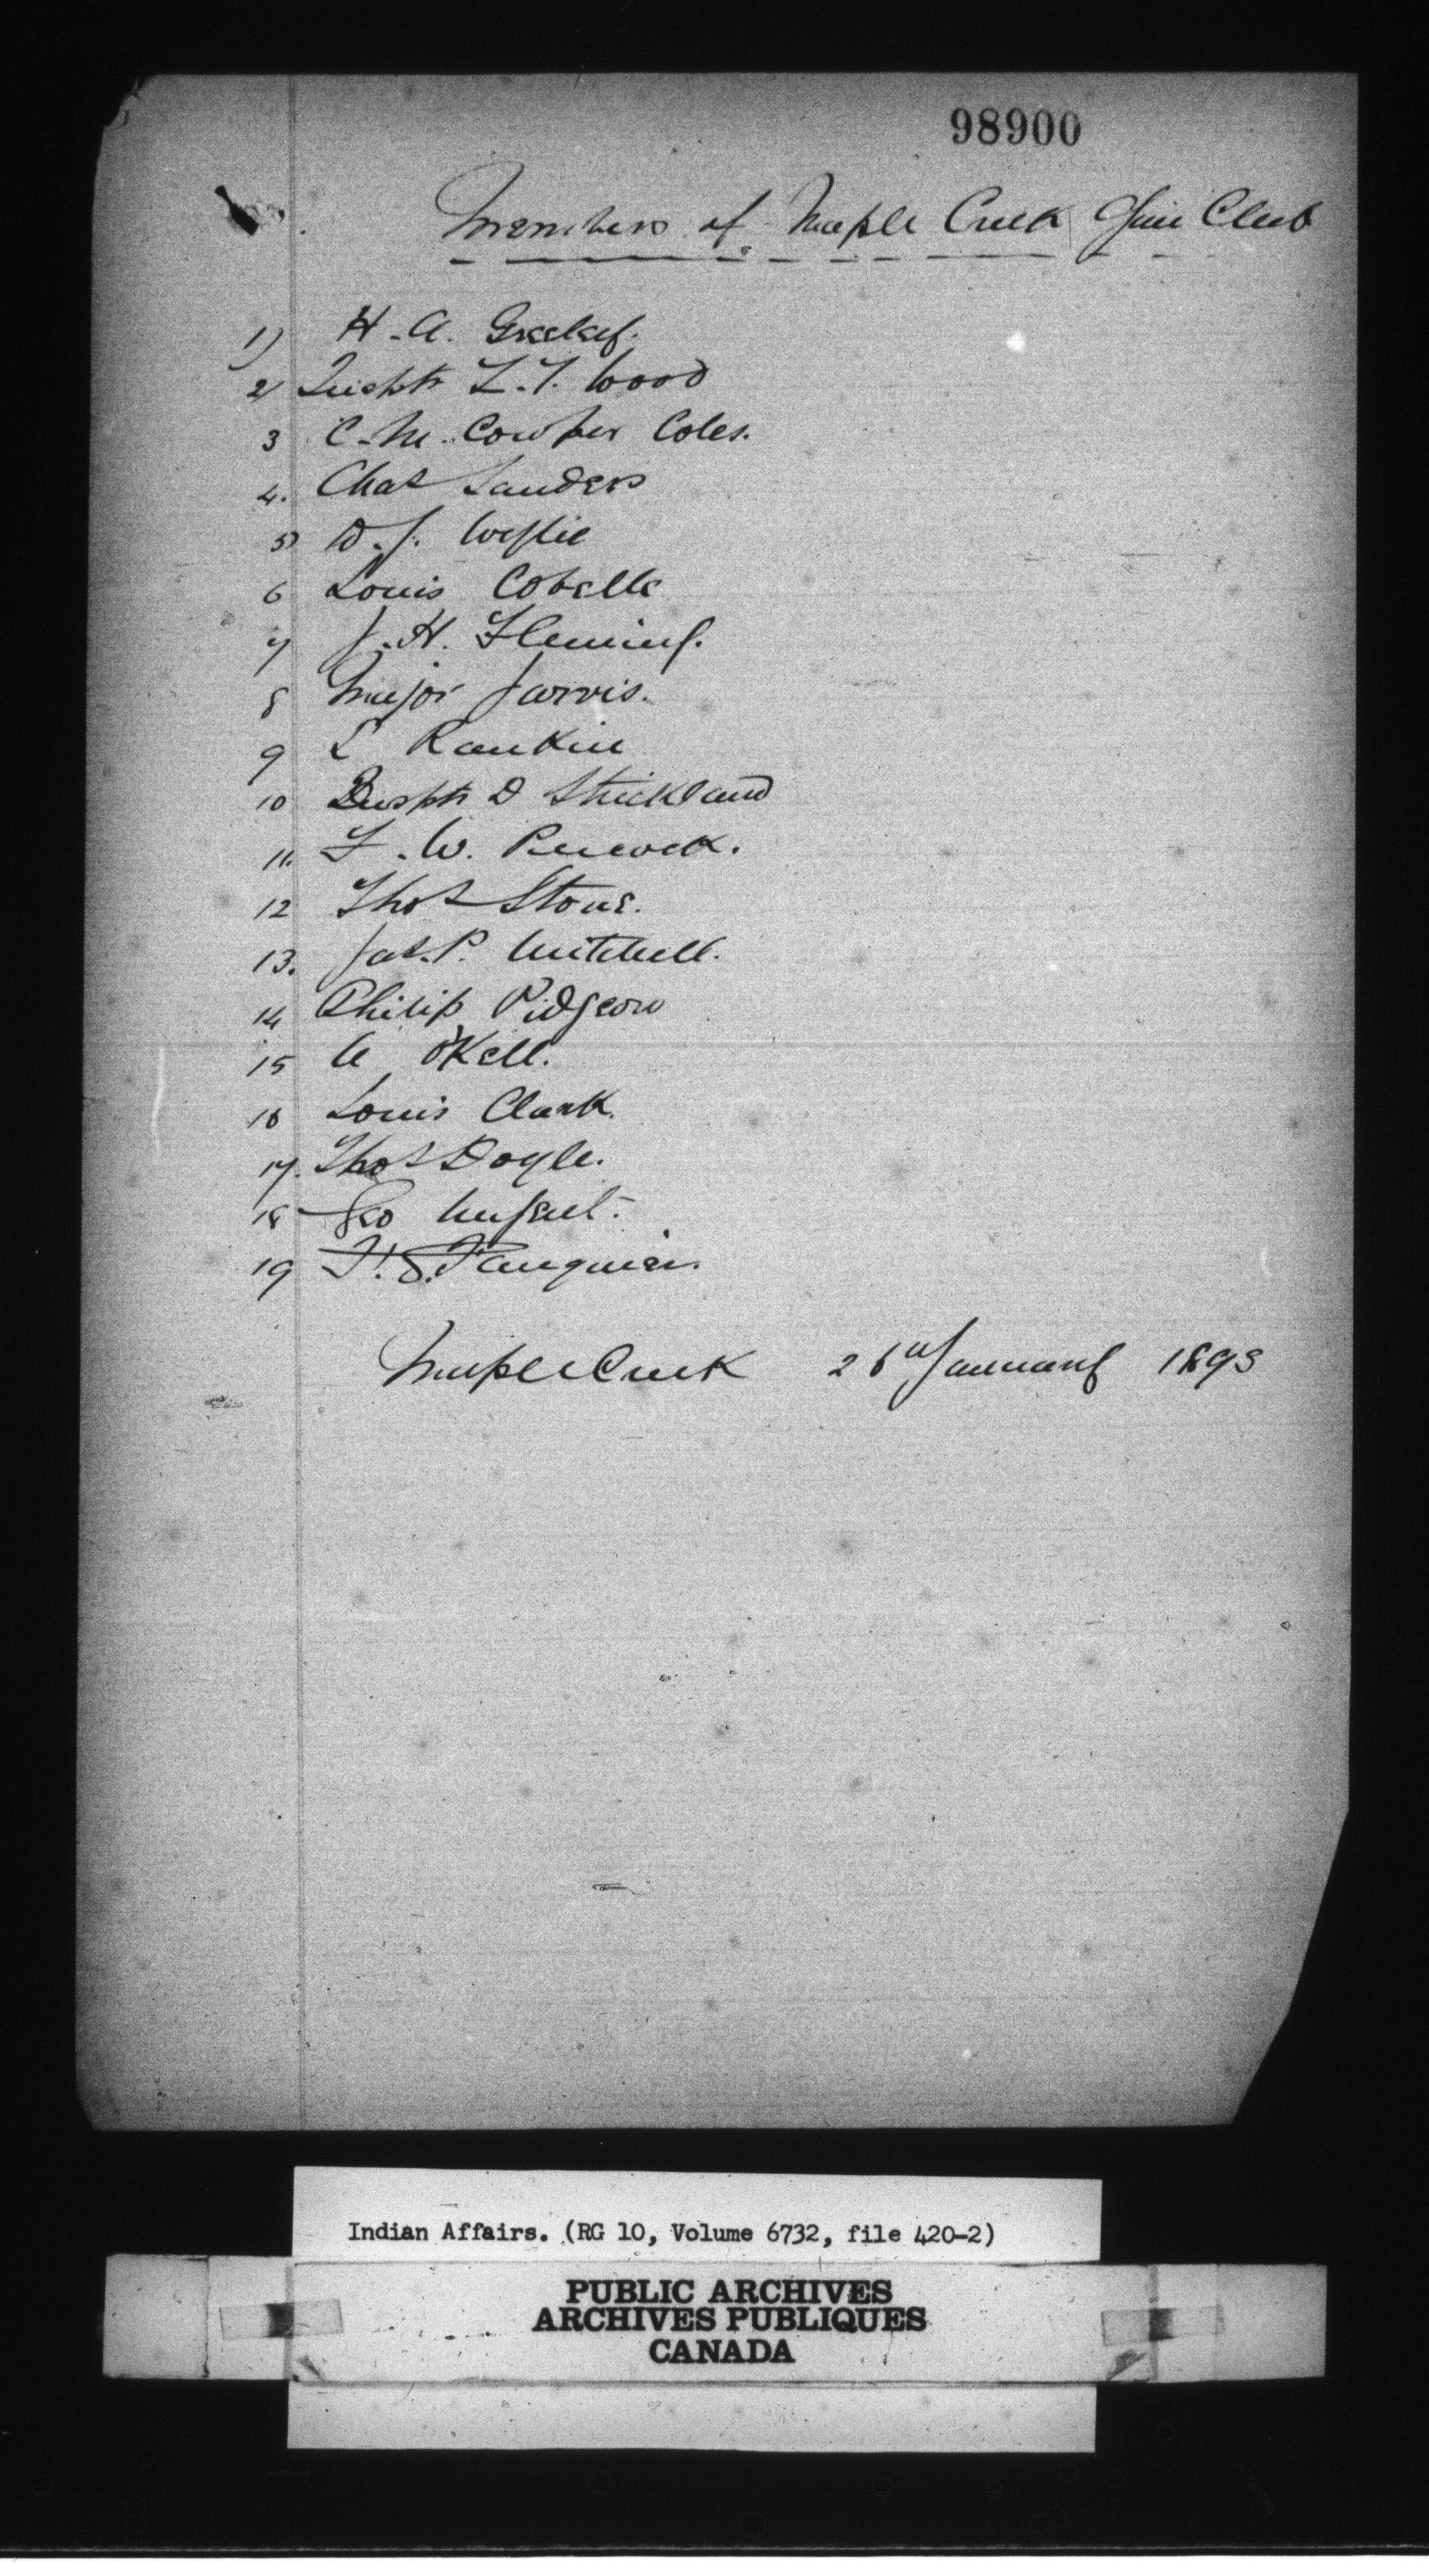 98900
Members of Maple Creek Gun Club
1) H. A. Greeley.
2) Inspt Z. T. Wood
3 C. M. Cowper Coles.
4. Chas Sanders
5) D. J. Wylie
6 Louis Cobelle
7 J. H. Fleming.
8 Major Jarvis.
9 L Rankin
10 Inspt D Strickland
11. F. W. Peacock.
12 Thos Stone.
13. Jas. P. Mitchell.
14 Philip Pidgeon
15 A O'Kell.
16 Louis Clark.
17. Thos Doyle.
18 Geo Nugent.
19 F. S. Fauquier.
Maple Creek 26th January 1893
Indian Affairs. (RG 10, Volume 6732, file 420-2)
PUBLIC ARCHIVES
ARCHIVES PUBLIQUES
CANADA